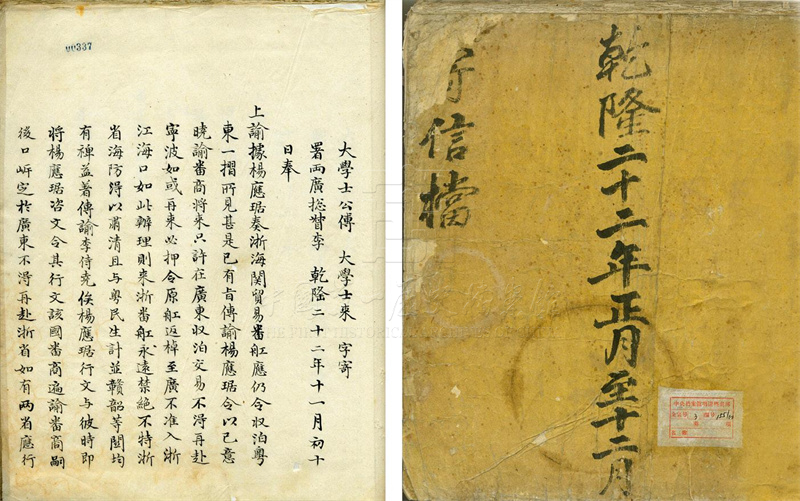 00337
大學士公傅　大學士來　字寄
署兩廣總督李　乾隆二十二年十一月初十
日奉
上諭據楊應琚奏浙海関貿易番舡應仍令収泊粤
東一摺所見甚是已有㫖傳諭楊應琚令以己意
曉諭番商将來只許在廣東収泊交易不淂再赴
寧波如或再來必押令原舡返棹至廣不准入浙
江海口如此辦理則來浙番舡永遠禁絶不特浙
省海防得以肅清且与粤民生計並贛韶等関均
有裨益著傳諭李侍堯俟楊應琚行文与彼時即
将楊應琚咨文令其行文該國番商遍諭番商嗣
後口岸定扵廣東不淂再赴浙省如有兩省應行
乾隆二十二年正月至十二月
寄信檔